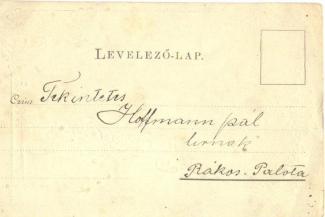 LEVELEZŐ-LAP.
Czim Tekintetes
Hoffmann pál
urnak
Rákos-Palota